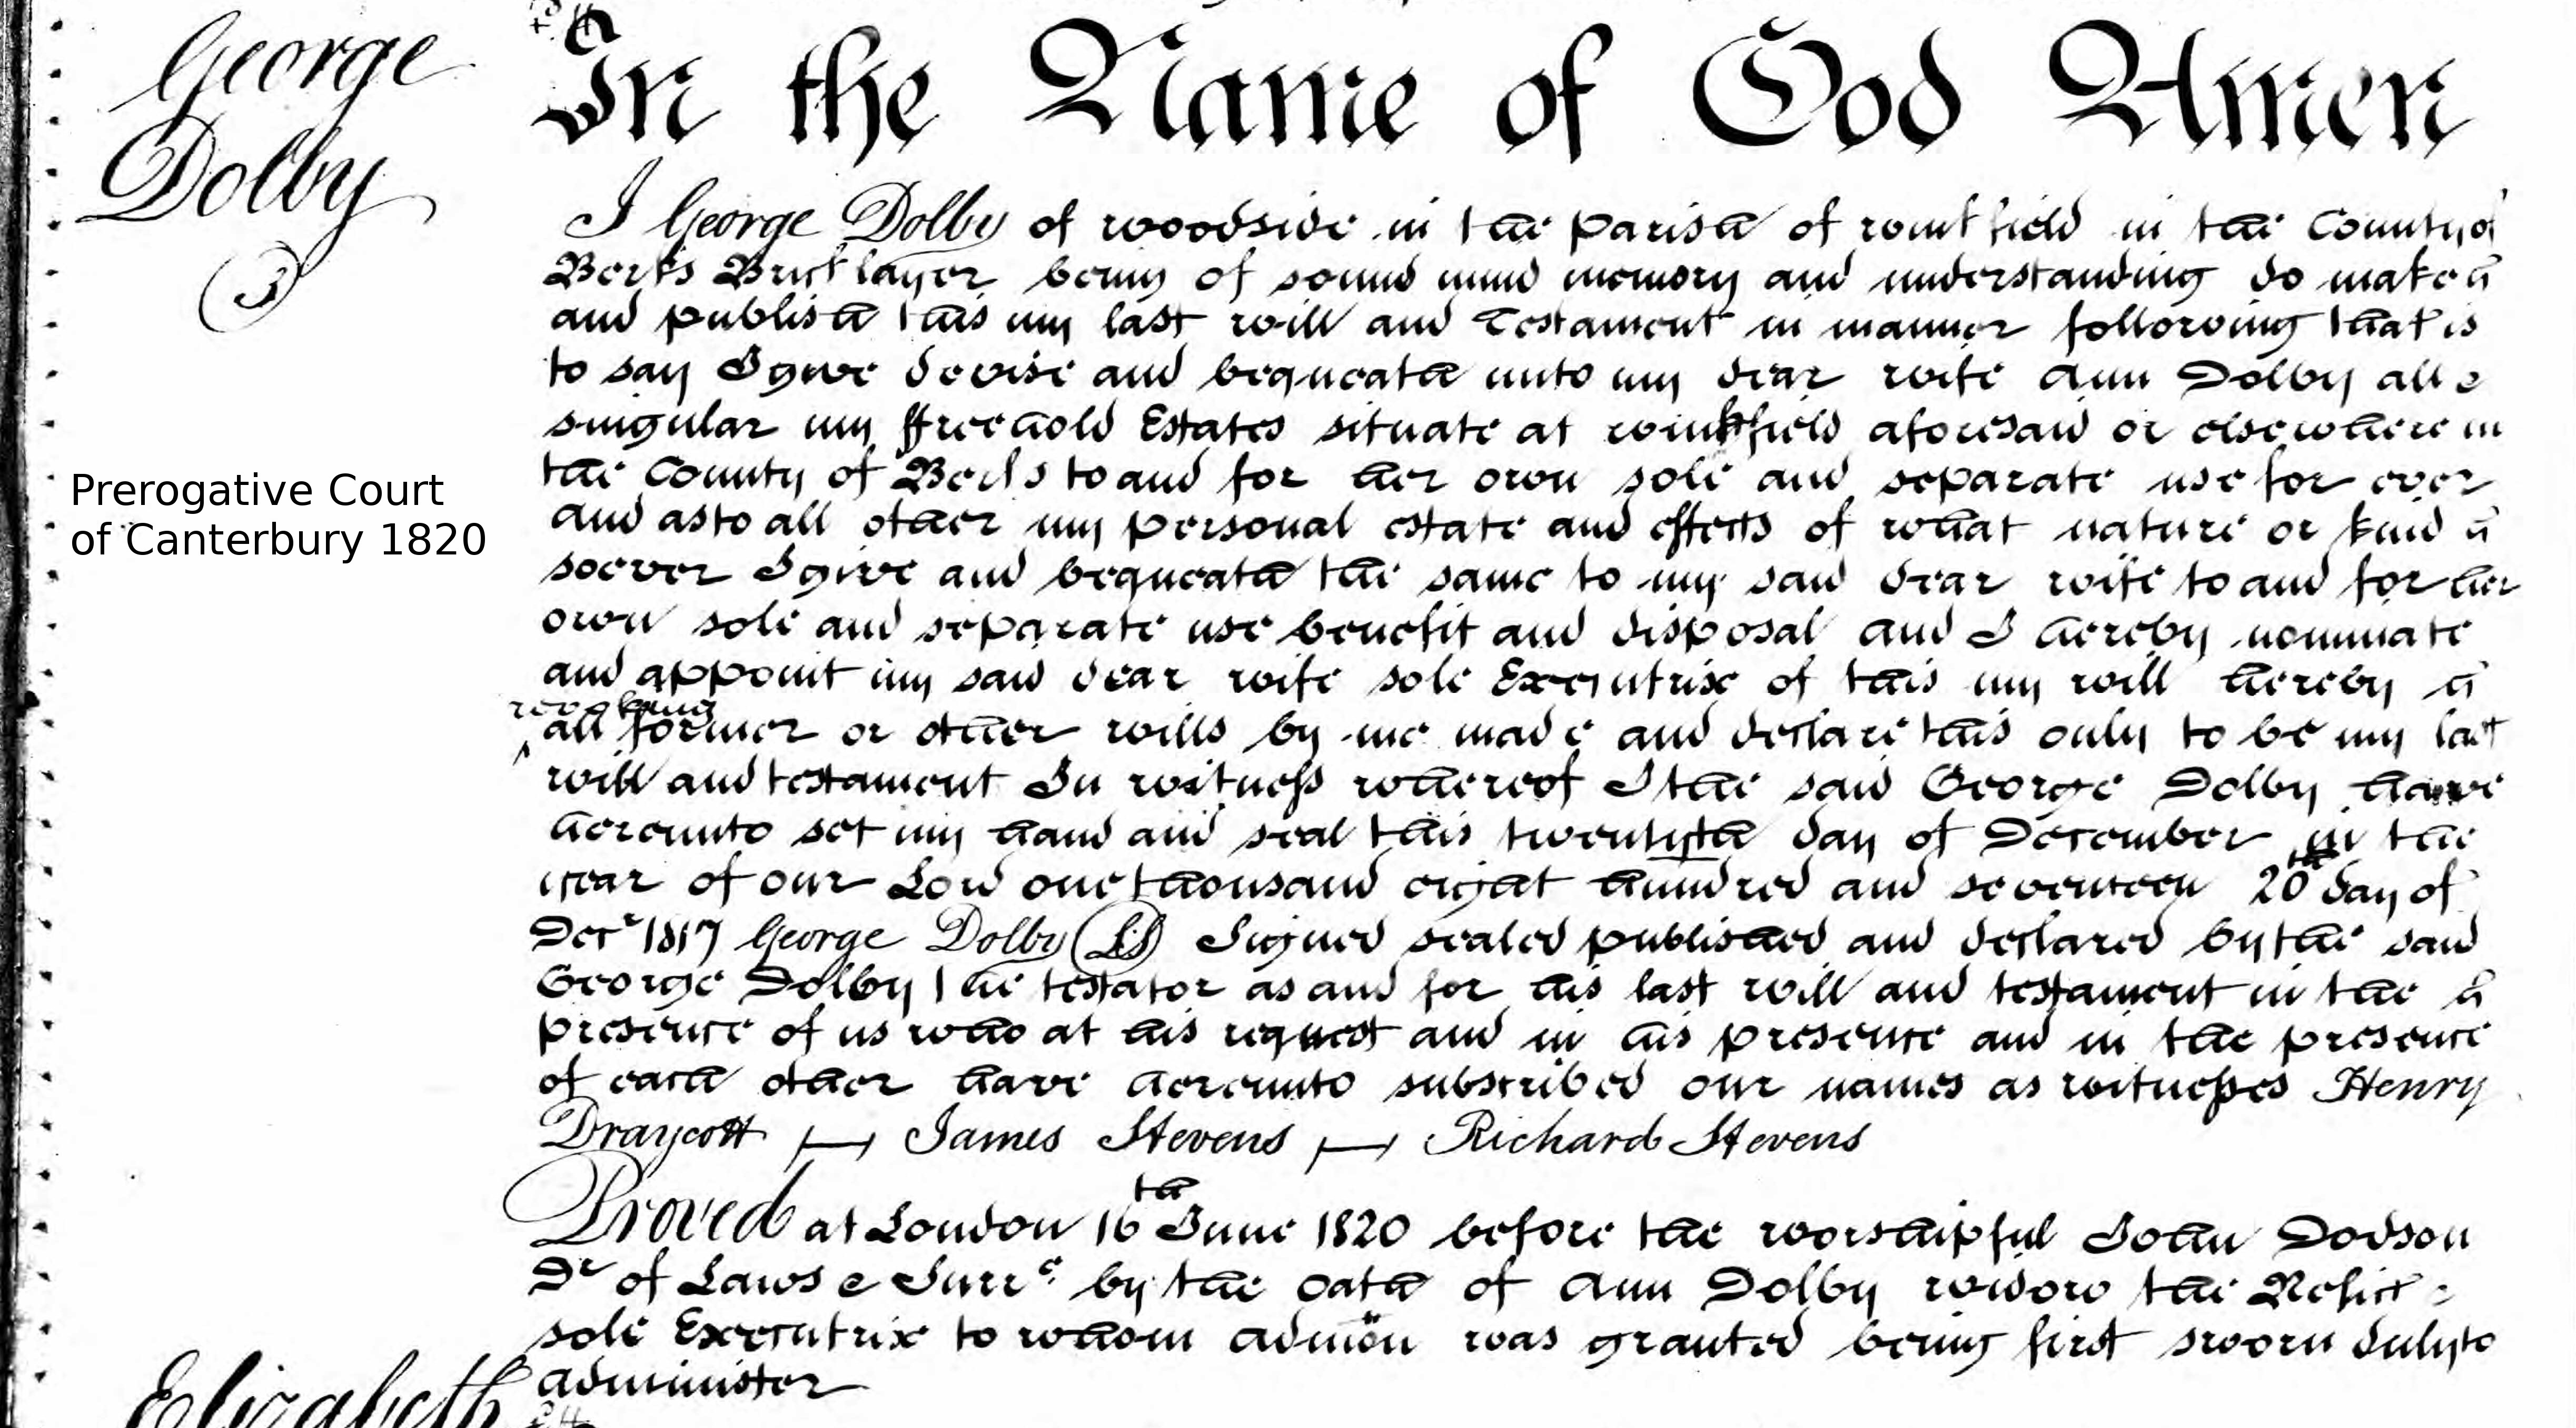 George
Dolby
3
Prerogative Court
of Canterbury 1820
In the Name of God Amen
I George Dolby of woodside in the parish of winkfield in the County of
Berks Bricklayer being of sound mind memory and understanding do make
and publish this my last will and Testament in manner following that is
to say I give devise and bequeath unto my dear wife Ann Dolby all &
singular my ffreehold Estates situate at winkfield aforesaid or elsewhere in
the County of Berks to and for her own sole and separate use for ever
and as to all other my personal estate and effects of what nature or kind
soever I give and bequeath the same to my said dear wife to and for her
own sole and separate use benefit and disposal and I hereby nominate
and appoint my said dear wife sole Executrix of this my will hereby
revoking
all former or other wills by me made and declare this only to be my last
will and testament In witness whereof I the said George Dolby have
hereunto set my hand and seal this twentyth day of December in the
year of our Lord one thousand eight hundred and seventeen 20th day of
Decr 1817 George Dolby (LS) Signed sealed published and declared by the said
George Dolby the testator as and for his last will and testament in the
presence of us who at his request and in his presence and in the presence
of each other have hereunto subscribed our names as witnesses Henry
Draycott — James Stevens — Richard Stevens
Proved at London 16th June 1820 before the worshipful John Dodson
Dr of Laws & Surre by the oath of Ann Dolby widow the Relict &
sole Executrix to whom admon was granted being first sworn duly to
administer
Elizabeth